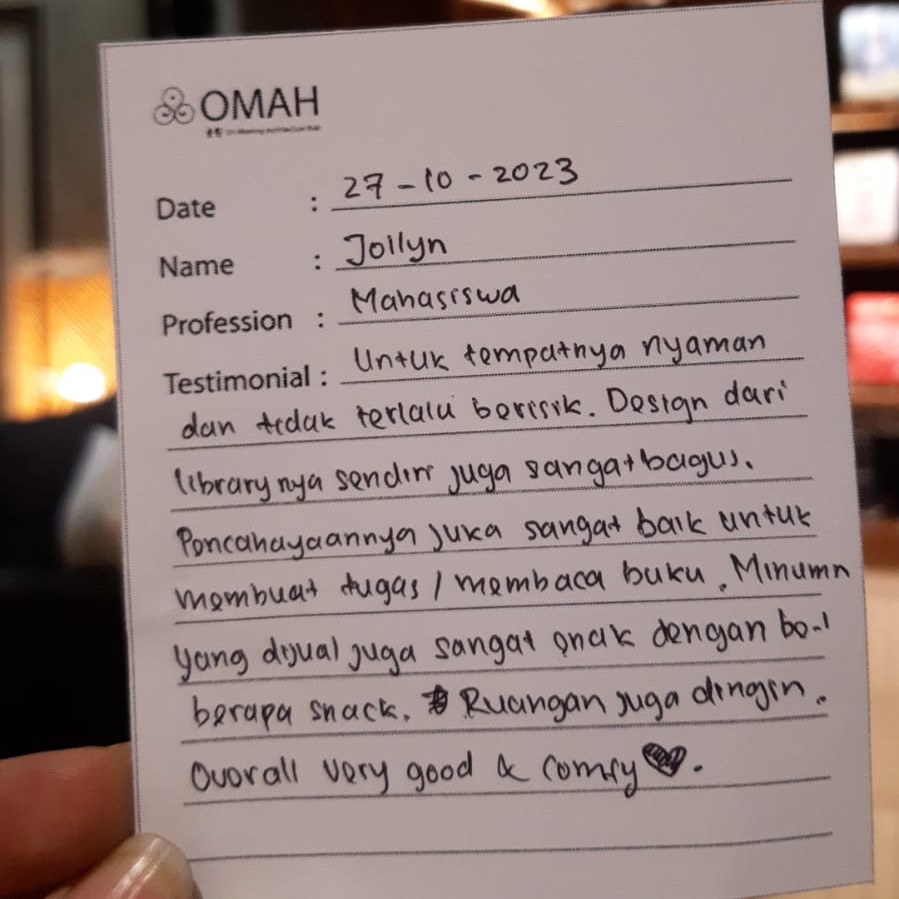 OMAH
Date : 27-10-2023
Name : Jollyn
Profession : Mahasiswa
Testimonial : Untuk tempatnya nyaman
dan tidak terlalu berisik. Design dari
librarynya sendiri juga sangat bagus.
Pencahayaannya juka sangat baik untuk
membuat tugas / membaca buku. Minumn
yang dijual juga sangat enak dengan be-
berapa snack. Ruangan juga dingin.
Overall very good & comfy ♥.